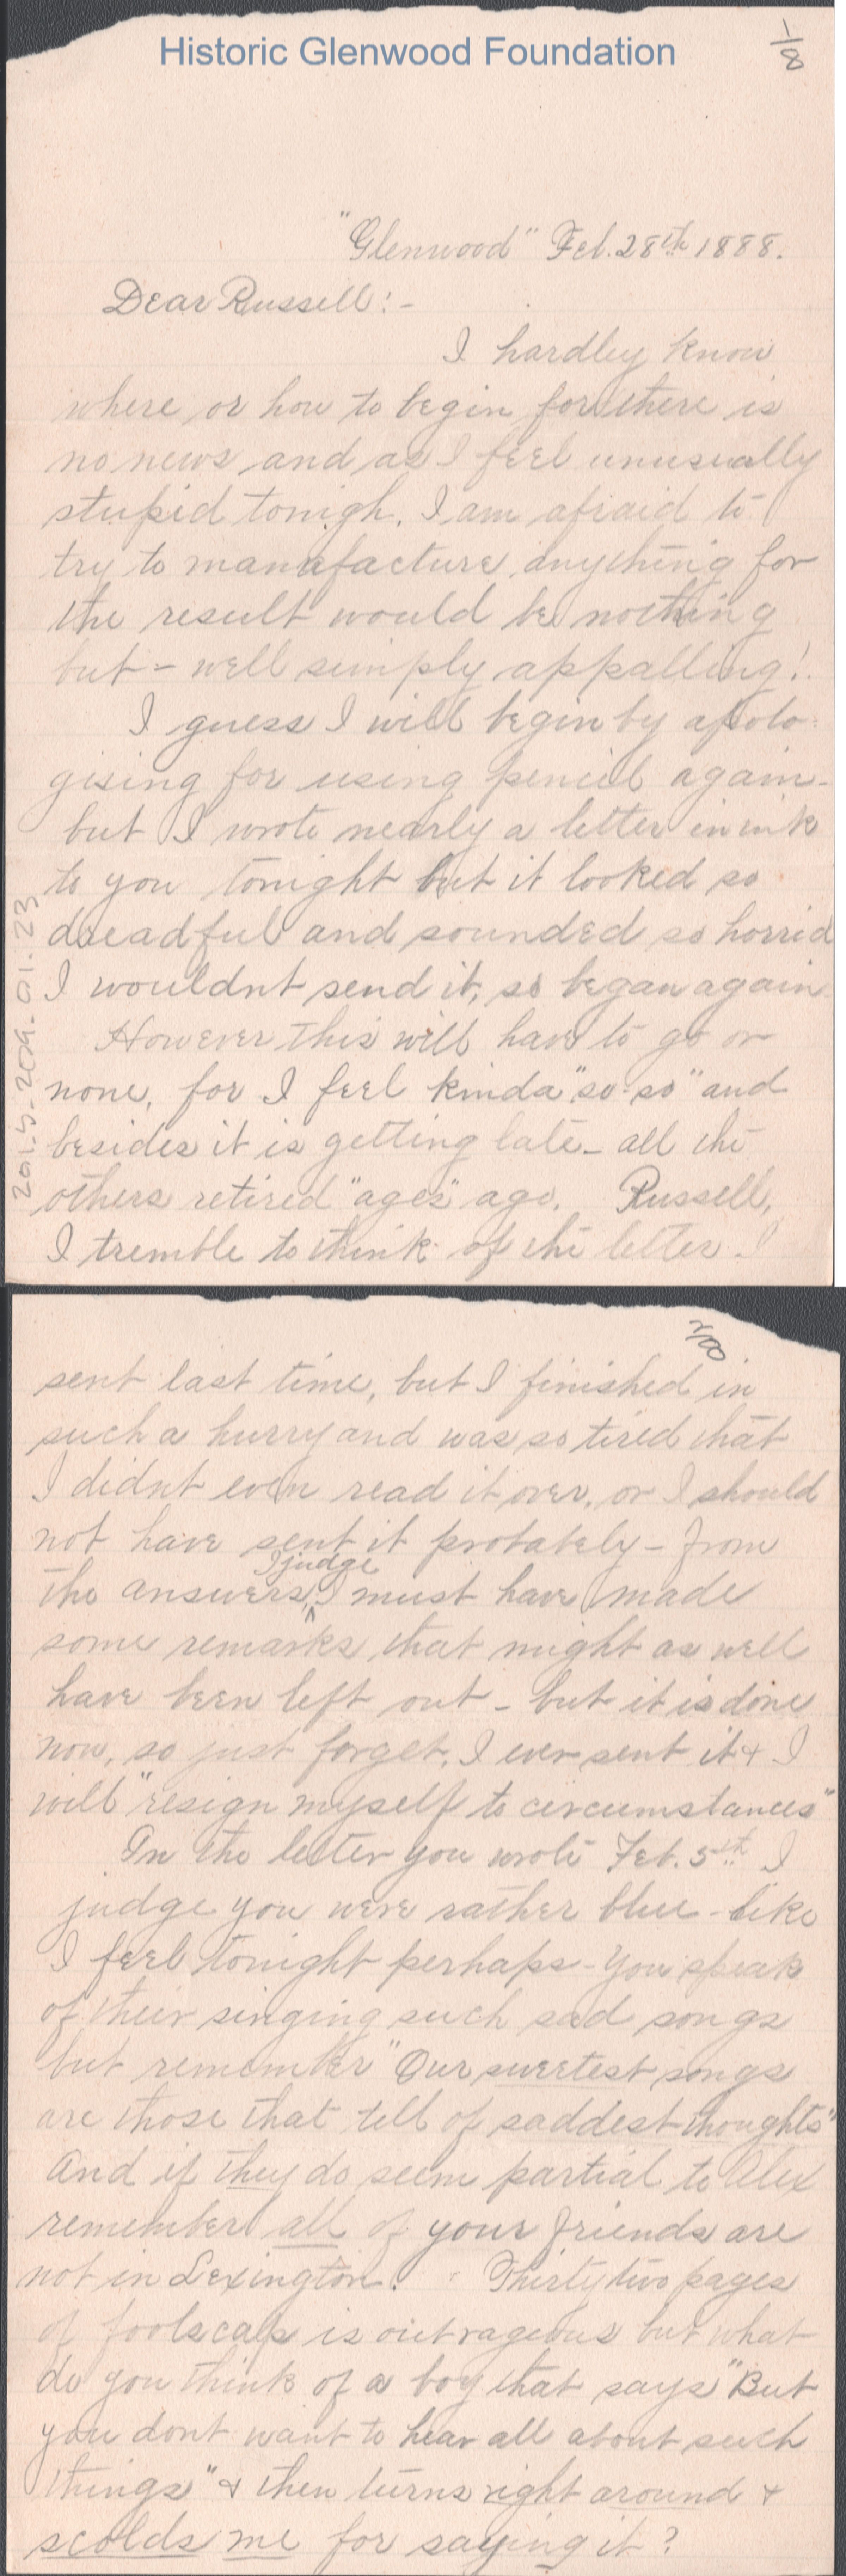 Historic Glenwood Foundation
1/8
"Glenwood" Feb. 28th 1888.
Dear Russell:-
I hardley know
where or how to begin for there is
no news and as I feel unusually
stupid tonigh. I am afraid to
try to manufacture anything for
the result would be nothing
but - well simply appalling!
I guess I will begin by apolo-
gising for using pencil again-
but I wrote nearly a letter in ink
to you tonight but it looked so
dreadful and sounded so horrid
I wouldnt send it, so began again
However this will have to go or
none, for I feel kinda "so-so" and
besides it is getting late - all the
others retired "ages" ago. Russell,
I tremble to think of the letter I
2015.209.01.23
2/8
sent last time, but I finished in
such a hurry and was so tired that
I didnt even read it over, or I should
not have sent it probately - from
the answers, I judge I must have made
some remarks that might as well
have been left out - but it is done
now, so just forget I ever sent it & I
will "resign myself to circumstances"
In the letter you wrote Feb. 5th I
judge you were rather blue - like
I feel tonight perhaps - You speak
of their singing such sad songs
but remember "Our sweetest songs
are those that tell of saddest thoughts"
And if they do seem partial to Alex
remember all of your friends are
not in Lexington. Thirty two pages
of foolscap is outrageous but what
do you think of a boy that says "But
you dont want to hear all about such
things" & then turns right around &
scolds me for saying it?